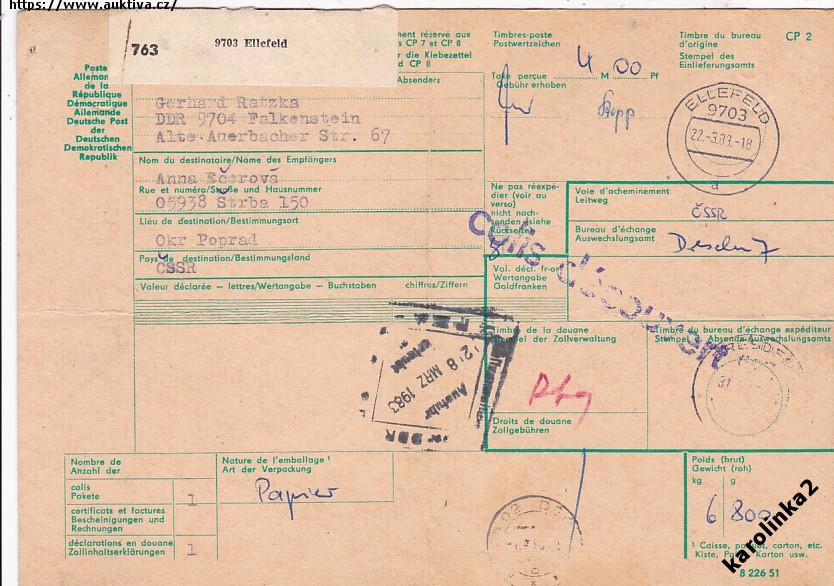 https://www.auktiva.cz/
763
9703 Ellefeld
ment réservé aux
s CP 7 et CP 8
r die Klebezettel
d CP 8
Absenders
Timbres-poste
Postwertzeichen
4,00
Taxe perçue M Pf
Gebühr erhoben
Timbre du bureau
d'origine
Stempel des
Einlieferungsamts
CP 2
ELLEFELD
9703
22.-3.83.-18
a
Poste
Alleman
de la
République
Démocratique
Allemande
Deutsche Post
der
Deutschen
Demokratischen
Republik
Gerhard Ratzka
DDR 9704 Falkenstein
Alte Auerbacher Str. 67
Nom du destinataire/Name des Empfängers
Anna Ečerová
Rue et numéro/Straße und Hausnummer
05938 Štrba 150
Lieu de destination/Bestimmungsort
Okr Poprad
Pays de destination/Bestimmungsland
ČSSR
Valeur déclarée - lettres/Wertangabe - Buchstaben
chiffrus/Ziffern
Ne pas réexpé-
dier (voir au
verso)
nicht nach-
senden (siehe
Rückseite)
Voie d'acheminement
Leitweg
ČSSR
Bureau d'échange
Auswechslungsamt
Colis d'écouran
Val. décl. fr-or
Wertangabe
Goldfranken
Timbre de la douane
Stempel der Zollverwaltung
Timbre du bureau d'échange expéditeur
Stempel Absende-Auswechslungsamts
28 MRZ 1983
Ausfuhr
DDR
Droits de douane
Zollgebühren
Nombre de
Anzahl der
colis
Pakete
1
certificats et factures
Bescheinigungen und
Rechnungen
déclarations en douane
Zollinhaltserklärungen
1
Nature de l'emballage ¹
Art der Verpackung
Papier
Poids (brut)
Gewicht (roh)
kg g
6 800
¹ Caisse, paquet, carton, etc.
Kiste, Paket, Karton usw.
8 226 51
karolinka2